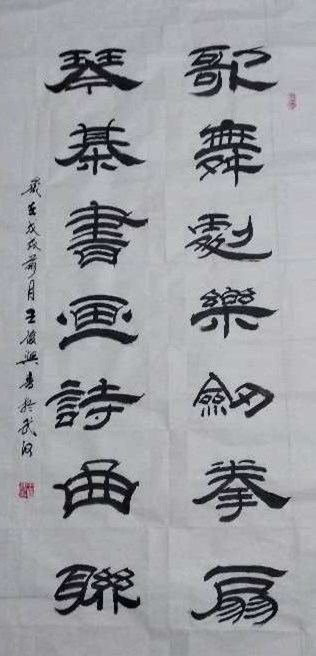 歌舞劇樂劔拳扇
琴棊書画詩曲聯
歲在戊戌前月王俊興書於武汉